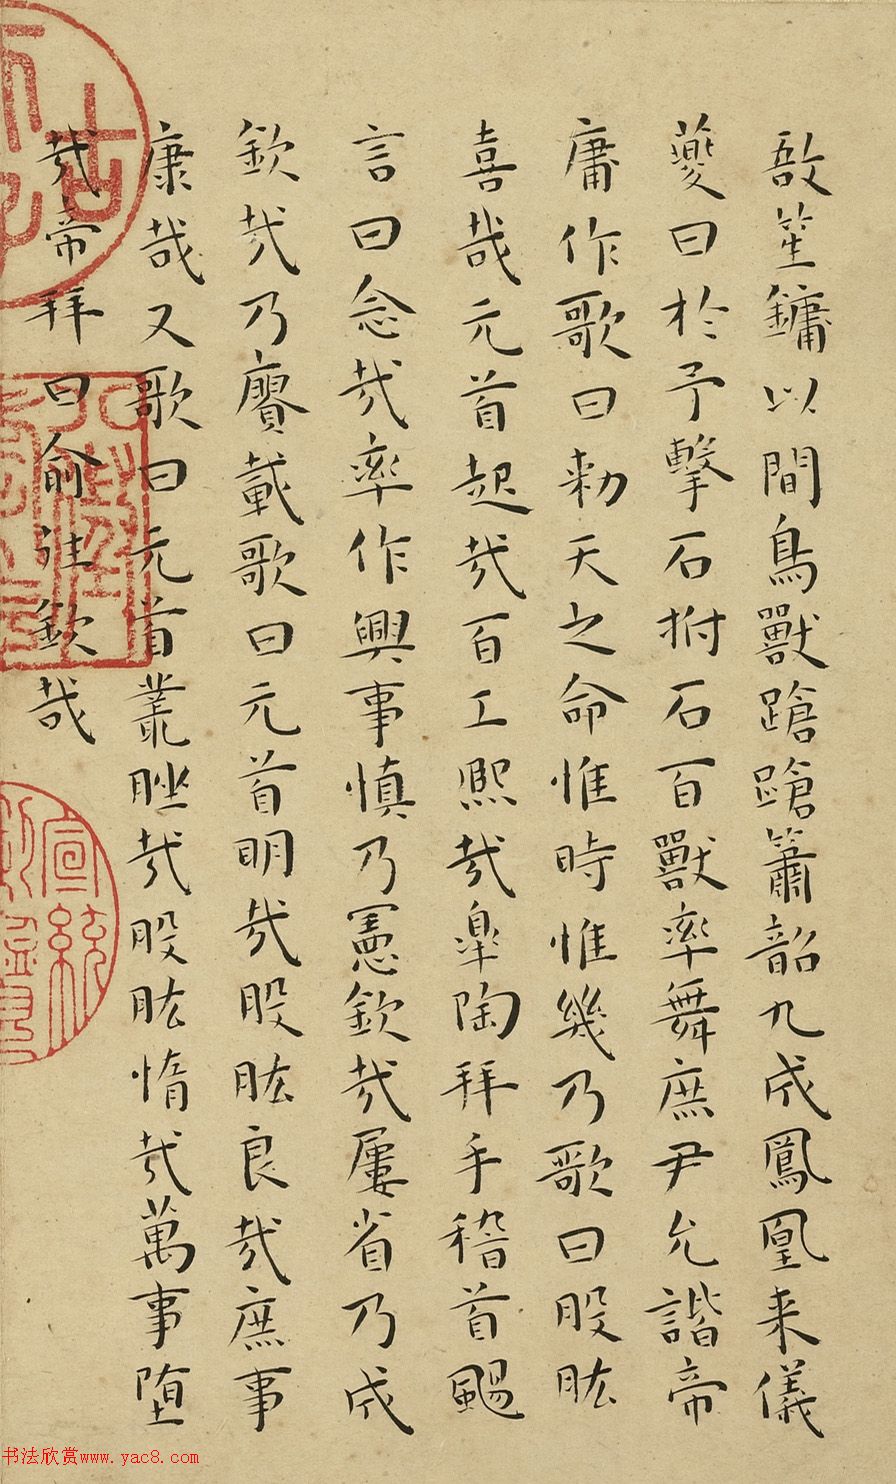 敔笙鏞以間鳥獸蹌蹌簫韶九成鳳凰来儀
夔曰於予擊石拊石百獸率舞庶尹允諧帝
庸作歌曰勑天之命惟時惟幾乃歌曰股肱
喜哉元首起哉百工熙哉臯陶拜手稽首颺
言曰念哉率作興事慎乃憲欽哉屢省乃成
欽哉乃賡載歌曰元首明哉股肱良哉庶事
康哉又歌曰元首叢脞哉股肱惰哉萬事堕
哉帝拜曰俞往欽哉
宣統
书法欣赏www.yac8.com